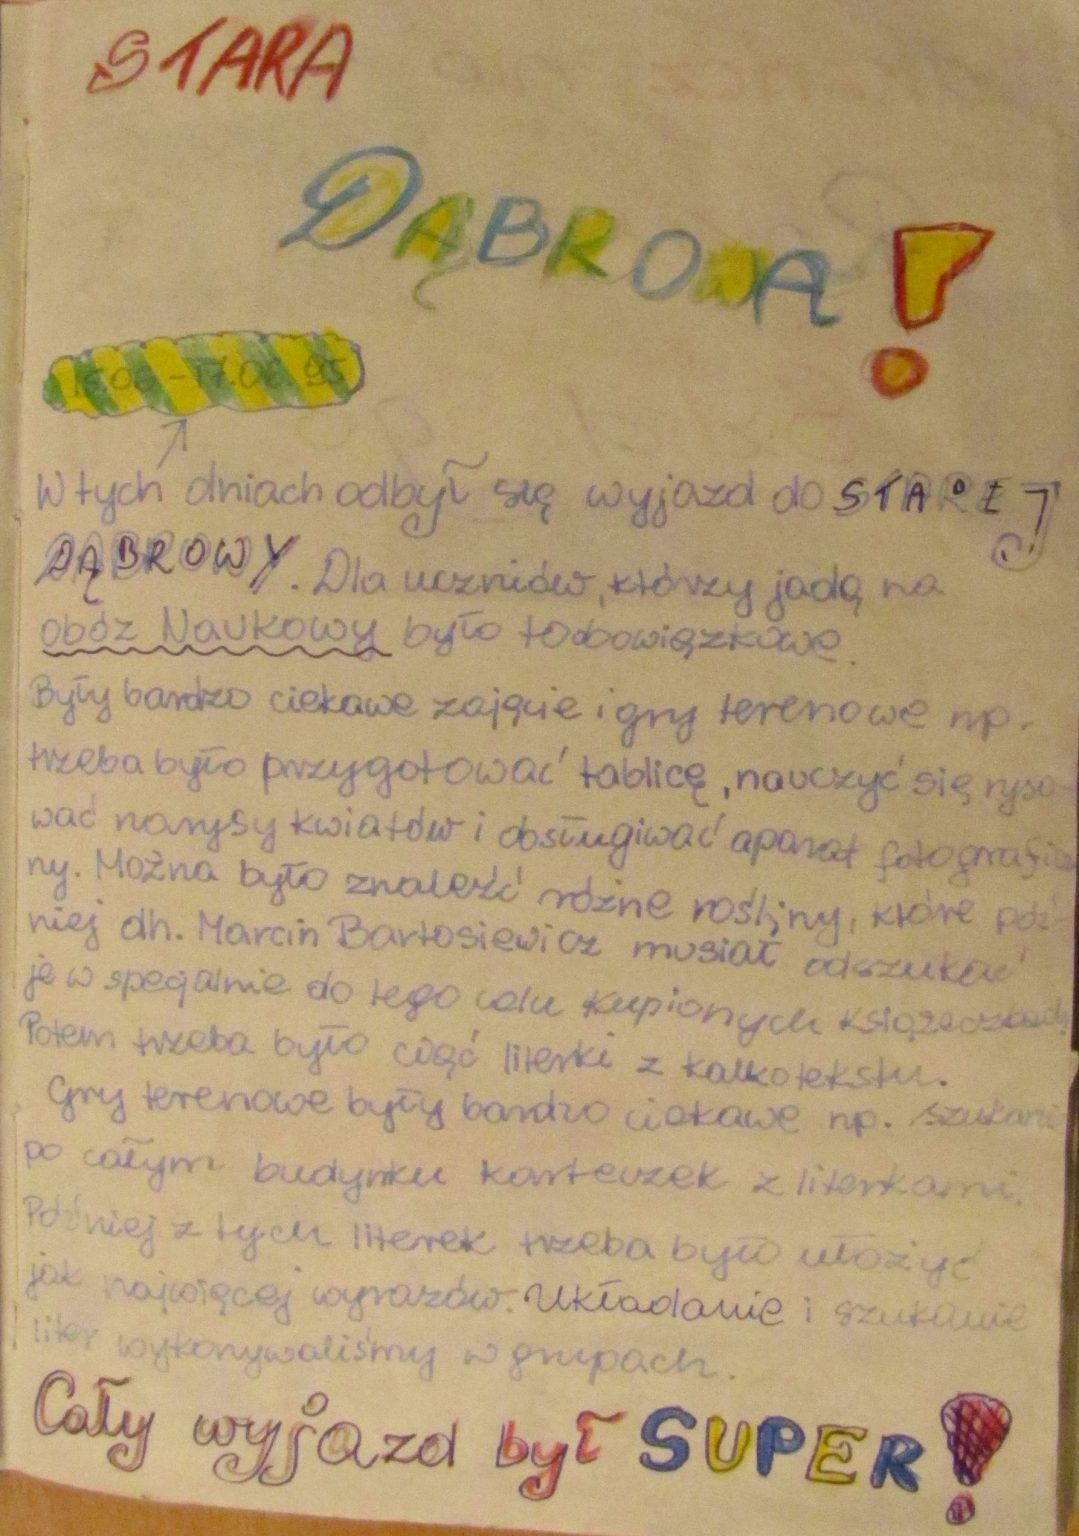 STARA
DĄBROWA!
15.06 - 17.06.95
W tych dniach odbył się wyjazd do STAREJ
DĄBROWY. Dla uczniów, którzy jadą na
obóz Naukowy było to obowiązkowe.
Były bardzo ciekawe zajęcie i gry terenowe np.
trzeba było przygotować tablicę, nauczyć się ryso-
wać narysy kwiatów i obsługiwać aparat fotografic
ny. Można było znaleźć różne rośliny, które póź-
niej dh. Marcin Bartosiewicz musiał odszukać
je w specjalnie do tego celu kupionych książeczkach
Potem trzeba było ciąć literki z kalkotekstu.
Gry terenowe były bardzo ciekawe np. szukanie
po całym budynku karteczek z literkami.
Później z tych literek trzeba było ułożyć
jak najwięcej wyrazów. Układanie i szukanie
liter wykonywaliśmy w grupach.
Cały wyjazd był SUPER!